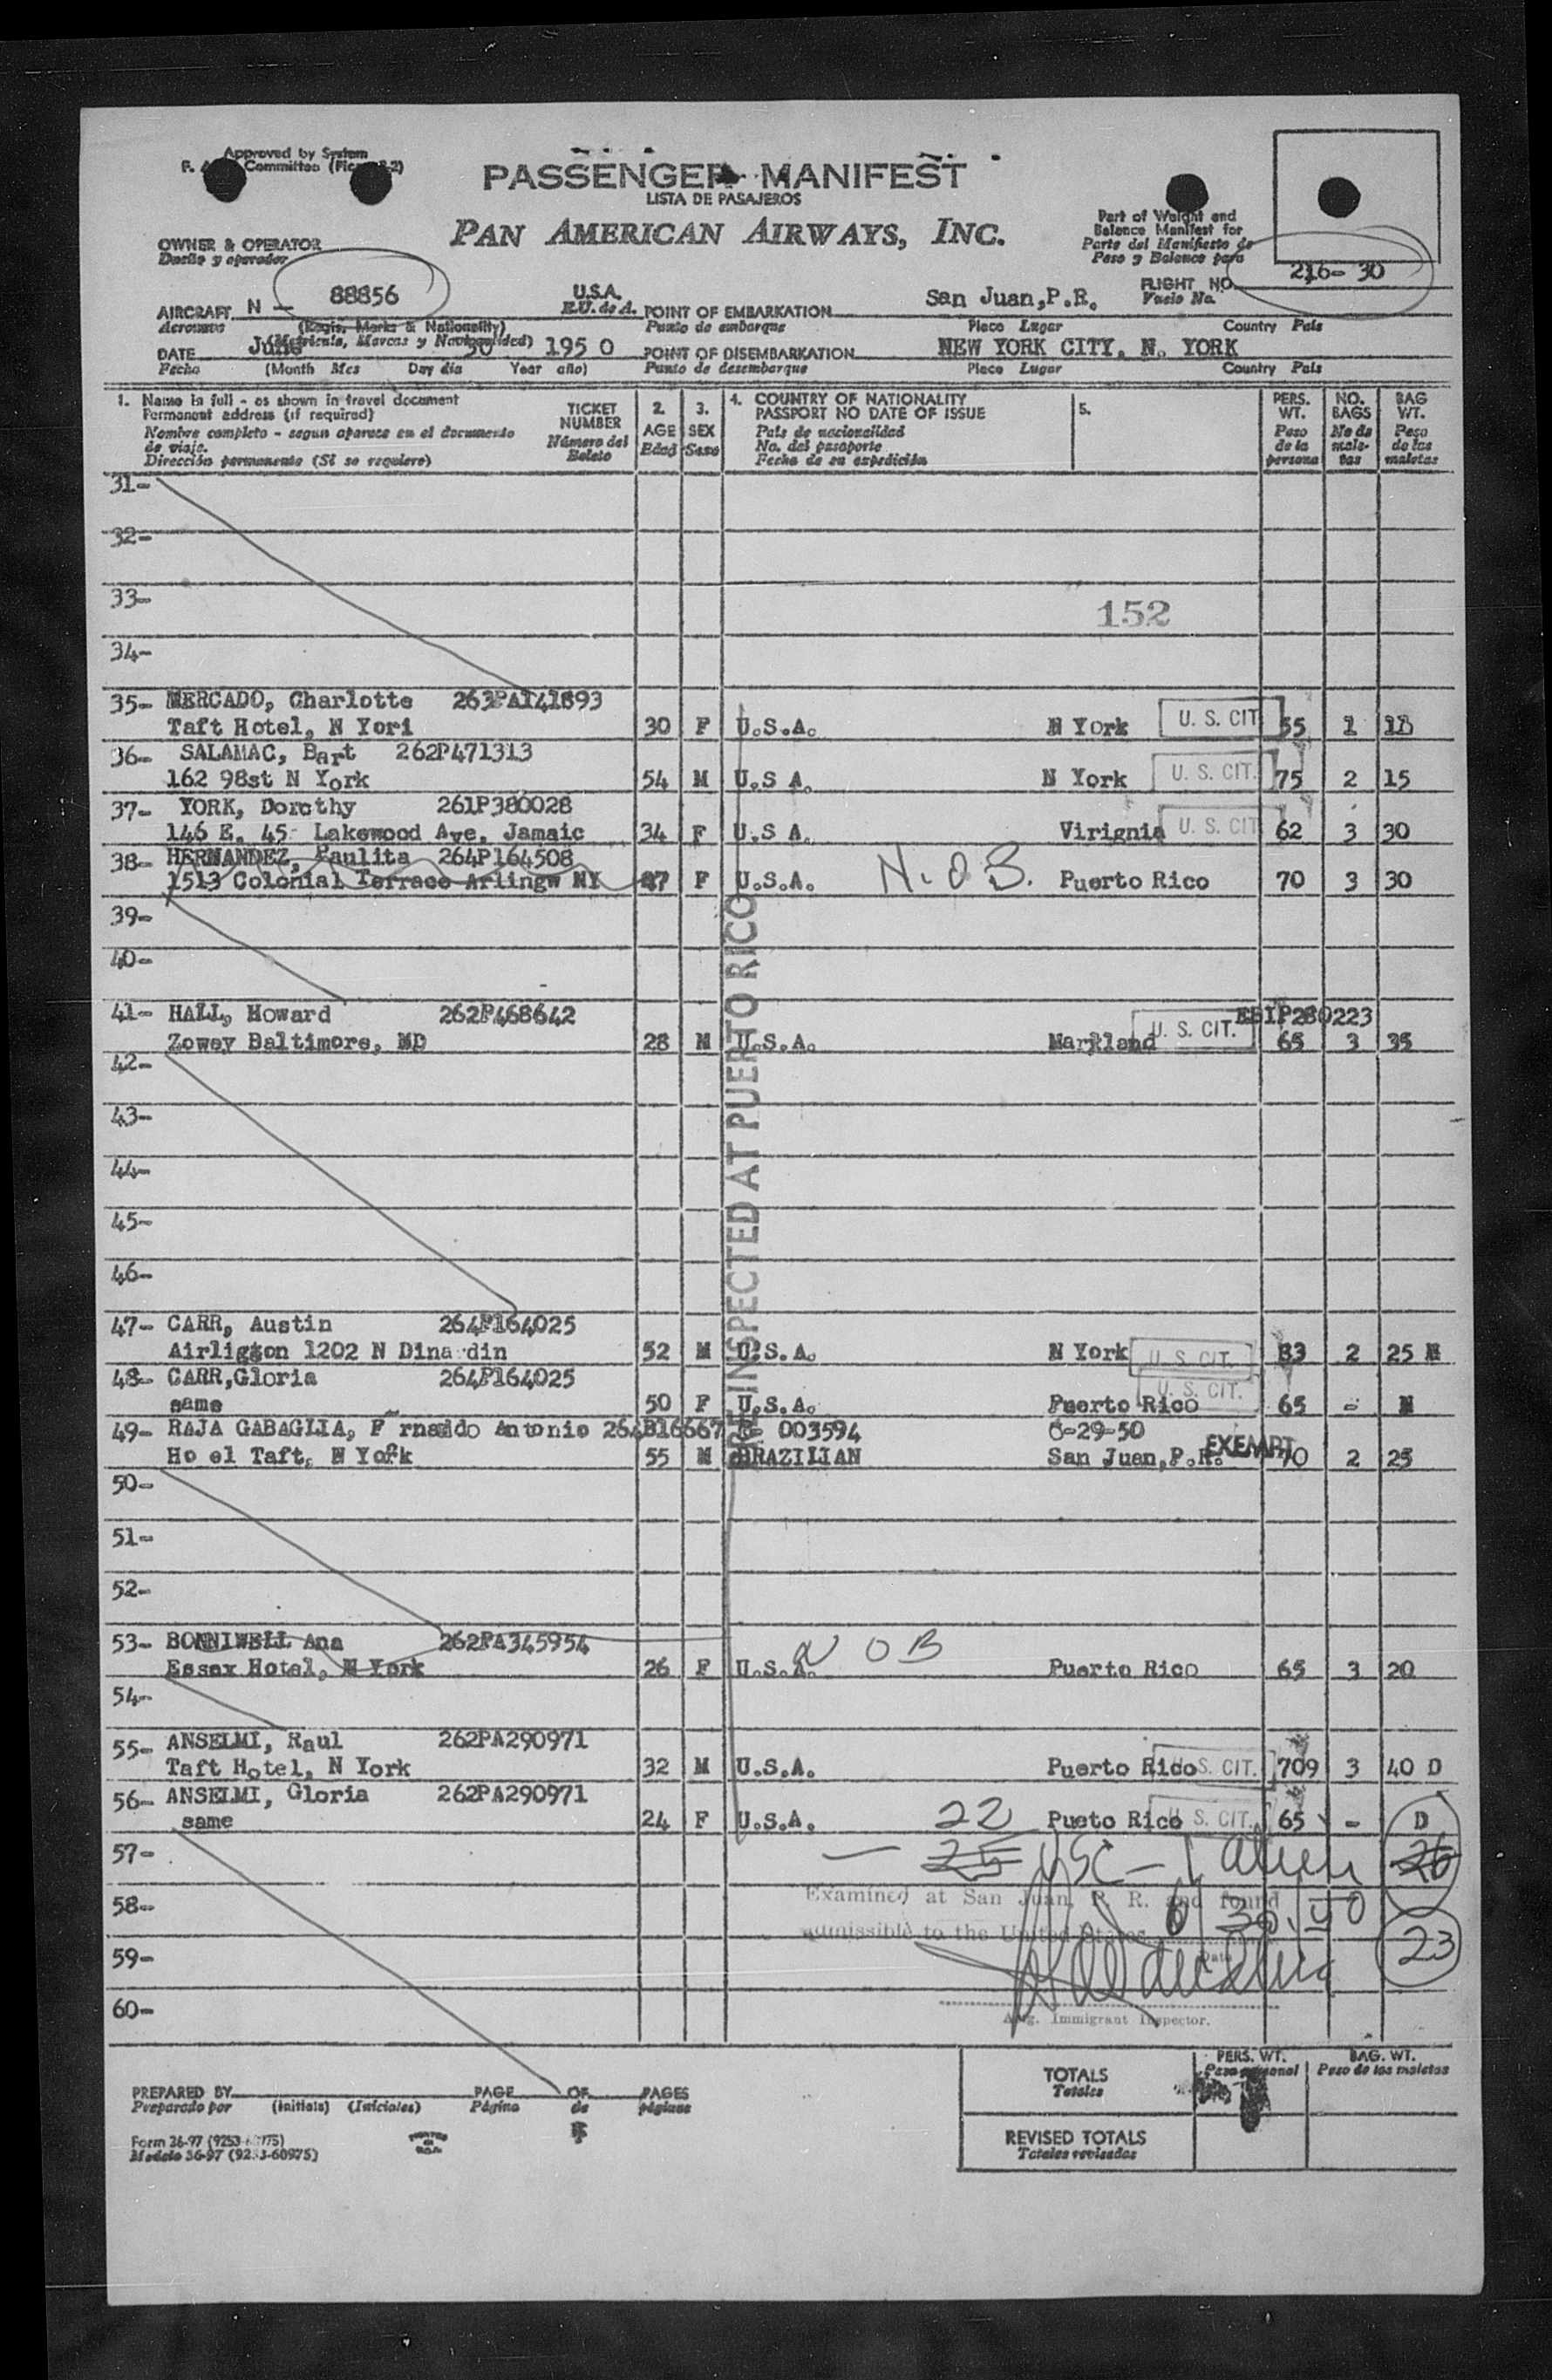 Approved by System
F. Committee
PASSENGER MANIFEST
LISTA DE PASAJEROS
PAN AMERICAN AIRWAYS, INC.
Part of Weight and
Balance Manifest for
Parte del Manifiesto de
Peso y Balance para
OWNER & OPERATOR
Dueño y operador
AIRCRAFT N - 88856 U.S.A.
Aeronave (Regis. Marks & Nationality) E.U. de A.
POINT OF EMBARKATION San Juan,P.R.
Punto de embarque Place Lugar Country País
FLIGHT NO. 216- 30
Vuelo No.
DATE June 30 1950
Fecha (Month Mes Day dia Year año)
POINT OF DISEMBARKATION NEW YORK CITY, N. YORK
Punto de desembarque Place Lugar Country País
1. Name in full - as shown in travel document
Permanent address (if required)
Nombre completo - segun aparece en el documento
de viaje.
Dirección permanente (Si se requiere)
TICKET
NUMBER
Número del
Boleto
2.
AGE
Edad
3.
SEX
Sexo
4. COUNTRY OF NATIONALITY
PASSPORT NO DATE OF ISSUE
País de nacionalidad
No. del pasaporte
Fecha de su expedición
5.
PERS.
WT.
Peso
de la
persona
NO.
BAGS
No de
male-
tas
BAG
WT.
Peso
de las
maletas
31-
32-
33-
152
34-
35- MERCADO, Charlotte 263PA141893
Taft Hotel, N Yori 30 F U.S.A. N York U. S. CIT. 55 1 18
36- SALAMAC, Bart 262P471313
162 98st N York 54 M U.S A. N York U. S. CIT. 75 2 15
37- YORK, Dorothy 261P380028
146 E. 45 Lakewood Ave, Jamaic 34 F U.S A. Virignia U. S. CIT 62 3 30
38- HERNANDEZ, Paulita 264P164508
1513 Colonial Terrace Arlingw NY F U.S.A. N.O.B. Puerto Rico 70 3 30
39-
40-
41- HALL, Howard 262P468642
Zowey Baltimore, MD 28 M U.S.A. U. S. CIT. 65 3 35
42-
43-
44-
45-
46-
PRE INSPECTED AT PUERTO RICO
47- CARR, Austin 264P164025
52 M U.S.A. N York U. S. CIT. 83 2 25 M
48- CARR,Gloria 264P164025
same 50 F U.S.A. Puerto Rico U. S. CIT. 65 - M
49- RAJA GABAGLIA, F rnando Antonio 264B16667 003594 6-29-50
Ho el Taft, N York 55 M BRAZILIAN San Juan,P.R. EXEMPT 70 2 25
50-
51-
52-
53- BONNIWELL Ana 262PA345954
Essex Hotel, N York 26 F U.S.A. N O B Puerto Rico 65 3 20
54-
55- ANSELMI, Raul 262PA290971
Taft Hotel, N York 32 M U.S.A. Puerto Rico U. S. CIT. 709 3 40 D
56- ANSELMI, Gloria 262PA290971
same 24 F U.S.A. 22 Pueto Rico U. S. CIT. 65 - D
57- — 25 USC - 1 alien 26
58- Examined at San Juan, P. R. and found
6/30/50
admissible to the United States
Date
59- 23
60-
Immigrant Inspector.
PREPARED BY
Preparado por (Initials) (Iniciales)
PAGE OF PAGES
Página de páginas
TOTALS
Totales
PERS. WT.
Peso personal
BAG. WT.
Peso de las maletas
REVISED TOTALS
Totales revisados
Form 36-97
Modelo 36-97 (9253-60975)